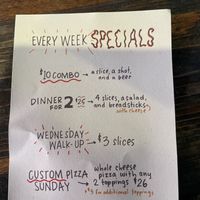 EVERY WEEK SPECIALS
$10 COMBO → a slice, a shot,
and a beer
DINNER FOR 2 $26 → 4 slices, a salad,
and breadsticks
with cheese
WEDNESDAY
WALK-UP → $3 slices
CUSTOM PIZZA
SUNDAY → whole cheese
pizza with any
2 toppings $26
+$3 for additional toppings